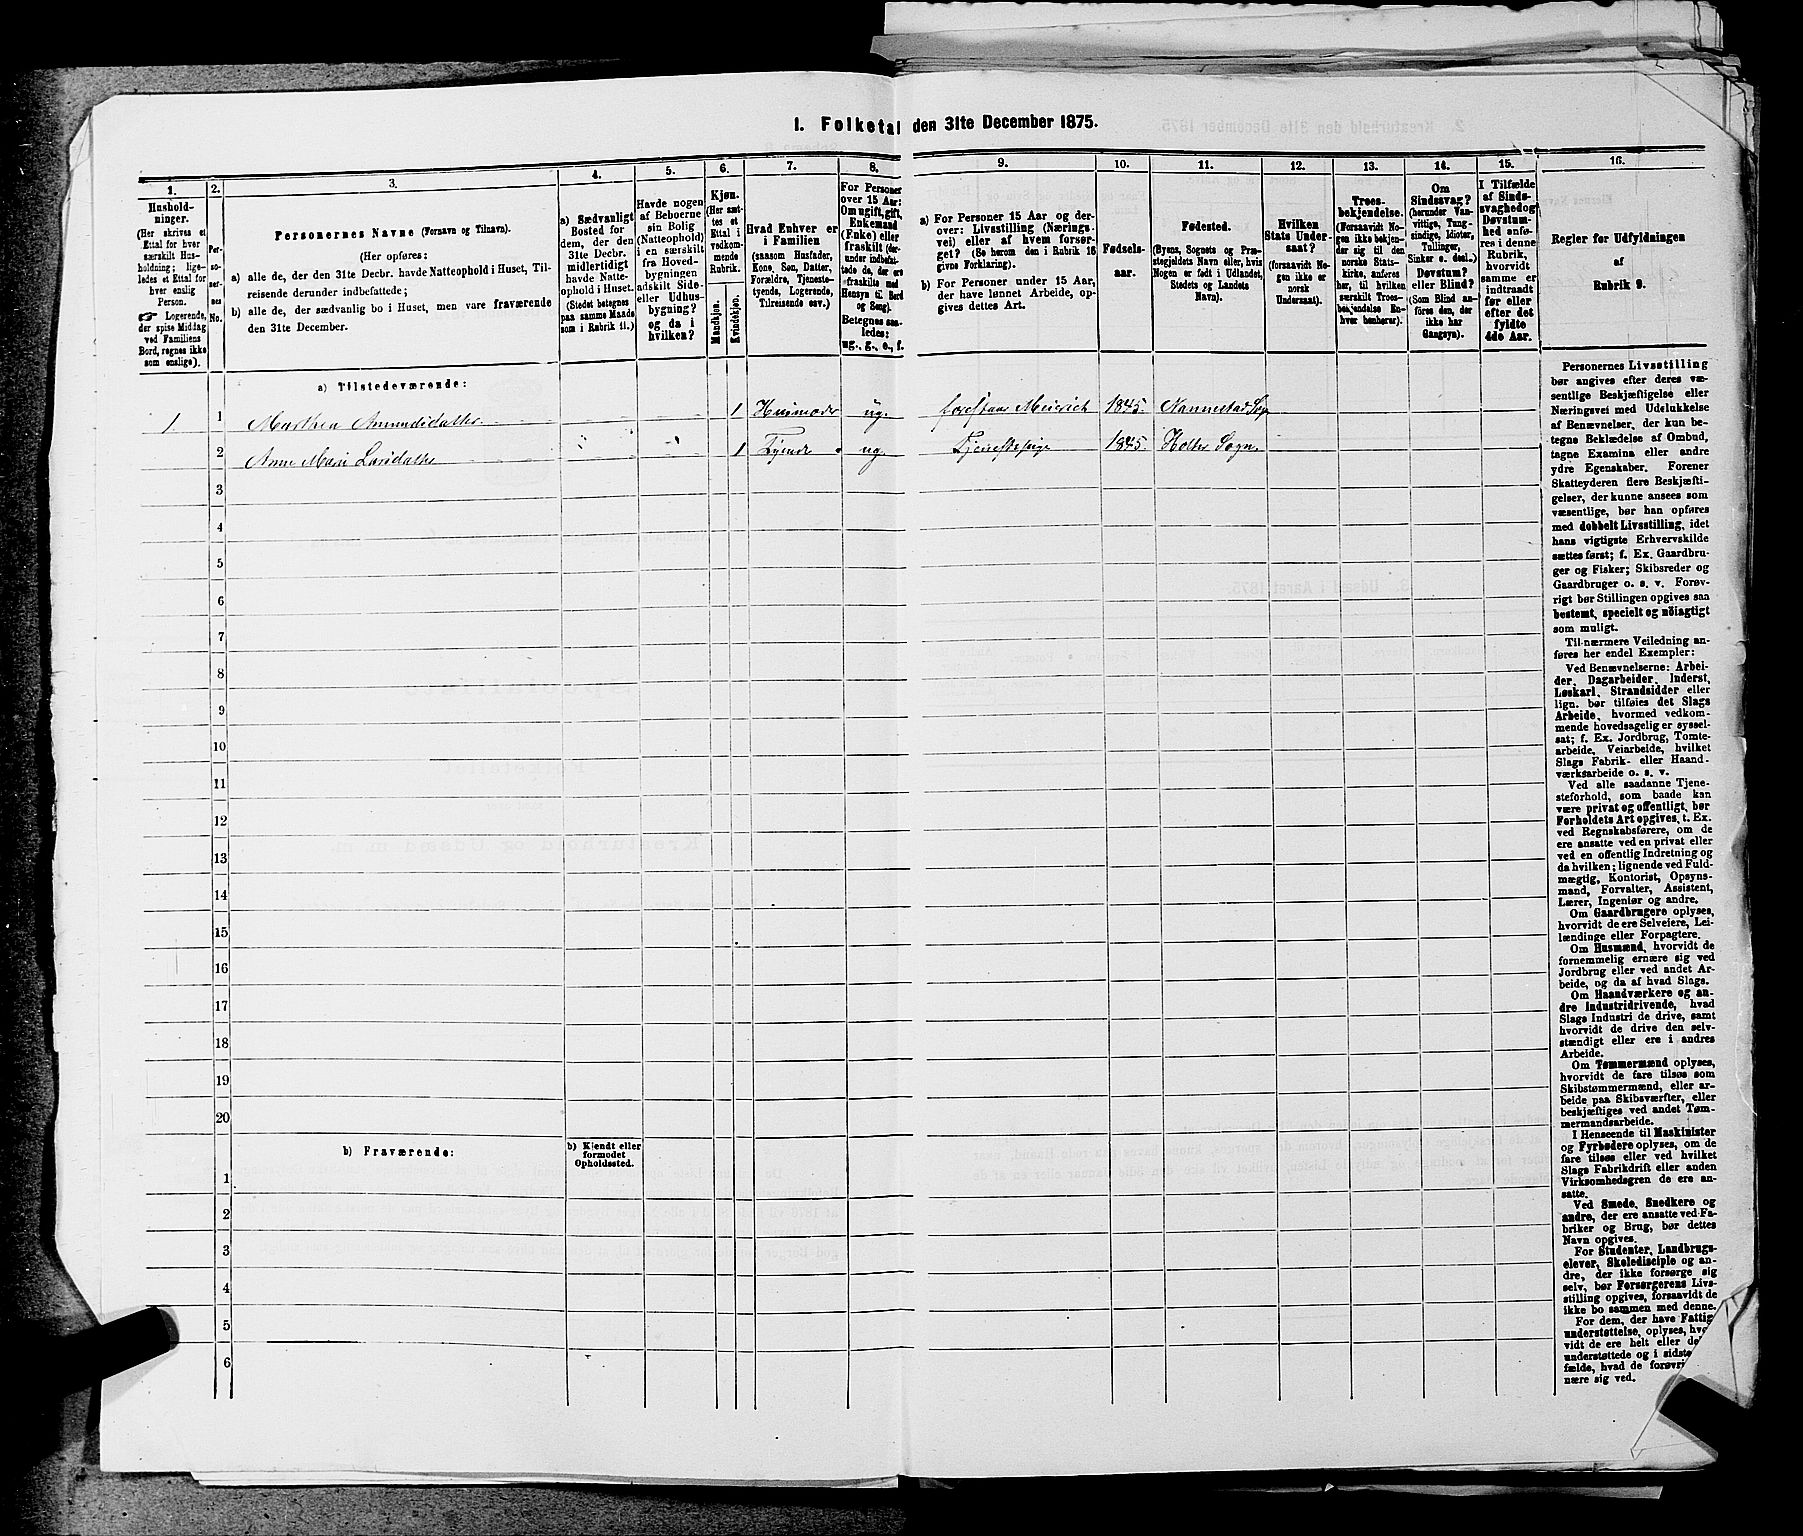 1. Folketal den 31te December 1875.
1.
2.
3.
4.
5.
6.
7.
8.
9.
10.
11.
12.
13.
14.
15.
16.
Hushold-
ninger.
(Her skrives et
Ettal for hver
særskilt Hus-
holdning; lige-
ledes et Ettal for
hver enslig
Person.
☞ Logerende,
der spise Middag
ved Familiens
Bord, regnes ikke
som enslige).
Per-
so-
ner-
nes
No.
Personernes Navne (Fornavn og Tilnavn).
(Her opføres:
a) alle de, der den 31te Decbr. havde Natteophold i Huset, Til-
reisende derunder indbefattede;
b) alle de, der sædvanlig bo i Huset, men vare fraværende
den 31te December.
a) Sædvanligt
Bosted for
dem, der den
31te Decbr.
midlertidigt
havde Natte-
ophold i Huset.
(Stedet betegnes
paa samme Maade
som i Rubrik 11.)
Havde nogen
af Beboerne
sin Bolig
(Natteophold)
i en særskilt
fra Hoved-
bygningen
adskilt Side-
eller Udhus-
bygning?
og da i
hvilken?
Kjøn.
(Her sæt-
tes et
Ettal i
vedkom-
mende
Rubrik.
Mandkjøn.
Kvindekjøn.
Hvad Enhver er
i Familien
(saasom Husfader,
Kone, Søn, Datter,
Forældre, Tjeneste-
tyende, Logerende,
Tilreisende osv.)
For Personer
over 15 Aar:
Om ugift, gift,
Enkemand
(Enke) eller
fraskilt (der-
under indbefat-
tede de, der ere
fraskilte med
Hensyn til Bord
og Seng).
Betegnes saa-
ledes:
ug., g., e., f.
a) For Personer 15 Aar og der-
over: Livsstilling (Nærings-
vei) eller af hvem forsør-
get? (Se herom den i Rubrik 16
givne Forklaring).
b) For Personer under 15 Aar,
der have lønnet Arbeide, op-
gives dettes Art.
Fødsels-
aar.
Fødested.
(Byens, Sognets og Præ-
stegjeldets Navn eller, hvis
Nogen er født i Udlandet,
Stedets og Landets
Navn).
Hvilken
Stats Under-
saat?
(forsaavidt No-
gen ikke er
norsk
Undersaat).
Troes-
bekjendelse.
(Forsaavidt No-
gen ikke bekjen-
der sig til den
norske Stats-
kirke, anføres
her, til hvilken
særskilt Troes-
bekjendelse En-
hver henhører).
Om
Sindssvag?
(herunder Van-
vittige, Tung-
sindige, Idioter,
Tullinger,
Sinker o. desl..)
Døvstum?
eller Blind?
(Som Blind an-
føres den, der
ikke har
Gangsyn).
I Tilfælde
af Sinds-
svaghed og
Døvstum-
hed anfø-
res i denne
Rubrik,
hvorvidt
samme er
indtraadt
før eller
efter det
fyldte
4de Aar.
Regler for Udfyldningen
af
Rubrik 9.
a) Tilstedeværende:
1 1 Marthea Amundsdatter 1 Husmoder ug. 1845. Nannestad Sogn
2 Anne Mari Larsdatter 1 Tyende ug. Tjenestepige 1845. Holter Sogn.
3
4
5
6
7
8
9
10
11
12
13
14
15
16
17
18
19
20
b) Fraværende:
b) Kjendt eller
formodet
Opholdssted.
1
2
3
4
5
6
Personernes Livsstilling
bør angives efter deres væ-
sentlige Beskjæftigelse eller
Næringsvei med Udelukkelse
af Benævnelser, der kun be-
tegne Beklædelse af Ombud,
tagne Examina eller andre
ydre Egenskaber. Forener
Skatteyderen flere Beskjæfti-
gelser, der kunne ansees som
væsentlige, bør han opføres
med dobbelt Livsstilling, idet
hans vigtigste Erhvervskilde
sættes først; f. Ex. Gaardbru-
ger og Fisker; Skibsreder og
Gaardbruger o. s. v. Forøv-
rigt bør Stillingen opgives saa
bestemt, specielt og nöiagtigt
som muligt.
Til nærmere Veiledning an-
føres her endel Exempler:
Ved Benævnelserne: Arbei-
der, Dagarbeider, Inderst,
Løskarl, Strandsidder eller
lign. bør tilføies det Slags
Arbeide, hvormed vedkom-
mende hovedsagelig er syssel-
sat; f. Ex. Jordbrug, Tomte-
arbeide, Veiarbeide, hvilket
Slags Fabrik- eller Haand-
værksarbeide o. s. v.
Ved alle saadanne Tjene-
steforhold, som baade kan
være privat og offentligt, bør
Forholdets Art opgives, t. Ex.
ved Regnskabsførere, om de
ere ansatte ved en privat eller
ved en offentlig Indretning og
da hvilken; lignende ved Fuld-
mægtig, Kontorist, Opsyns-
mand, Forvalter, Assistent,
Lærer, Ingeniør og andre.
Om Gaardbrugere oplyses,
hvorvidt de ere Selveiere, Lei-
lændinge eller Forpagtere.
Om Husmænd, hvorvidt de
fornemmelig ernære sig ved
Jordbrug eller ved andet Ar-
beide, og da af hvad Slags.
Om Haandværkere og an-
dre Industridrivende, hvad
Slags Industri de drive, samt
hvorvidt de drive den selv-
stændigt eller ere i andres
Arbeide.
Om Tømmermænd oplyses,
hvorvidt de fare tilsøs som
Skibstømmermænd, eller ar-
beide paa Skibsværfter, eller
beskjæftiges ved andet Tøm-
mermandsarbeide.
I Henseende til Maskinister
og Fyrbødere oplyses, om de
fare tilsøs eller ved hvilket
Slags Fabrikdrift eller anden
Virksomhedsgren de ere an-
satte.
Ved Smede, Snedkere og
andre, der ere ansatte ved Fa-
briker og Brug, bør dettes
Navn opgives.
For Studenter, Landbrugs-
elever, Skoledisciple og an-
dre, der ikke forsørge sig
selv, bør Forsørgerens Livs-
stilling opgives, forsaavidt de
ikke bo sammen med denne.
For dem, der have Fattig-
understøttelse, oplyses, hvor-
vidt de ere helt eller
understøttede og i sidste
fælde, hvad de
nære sig ved.